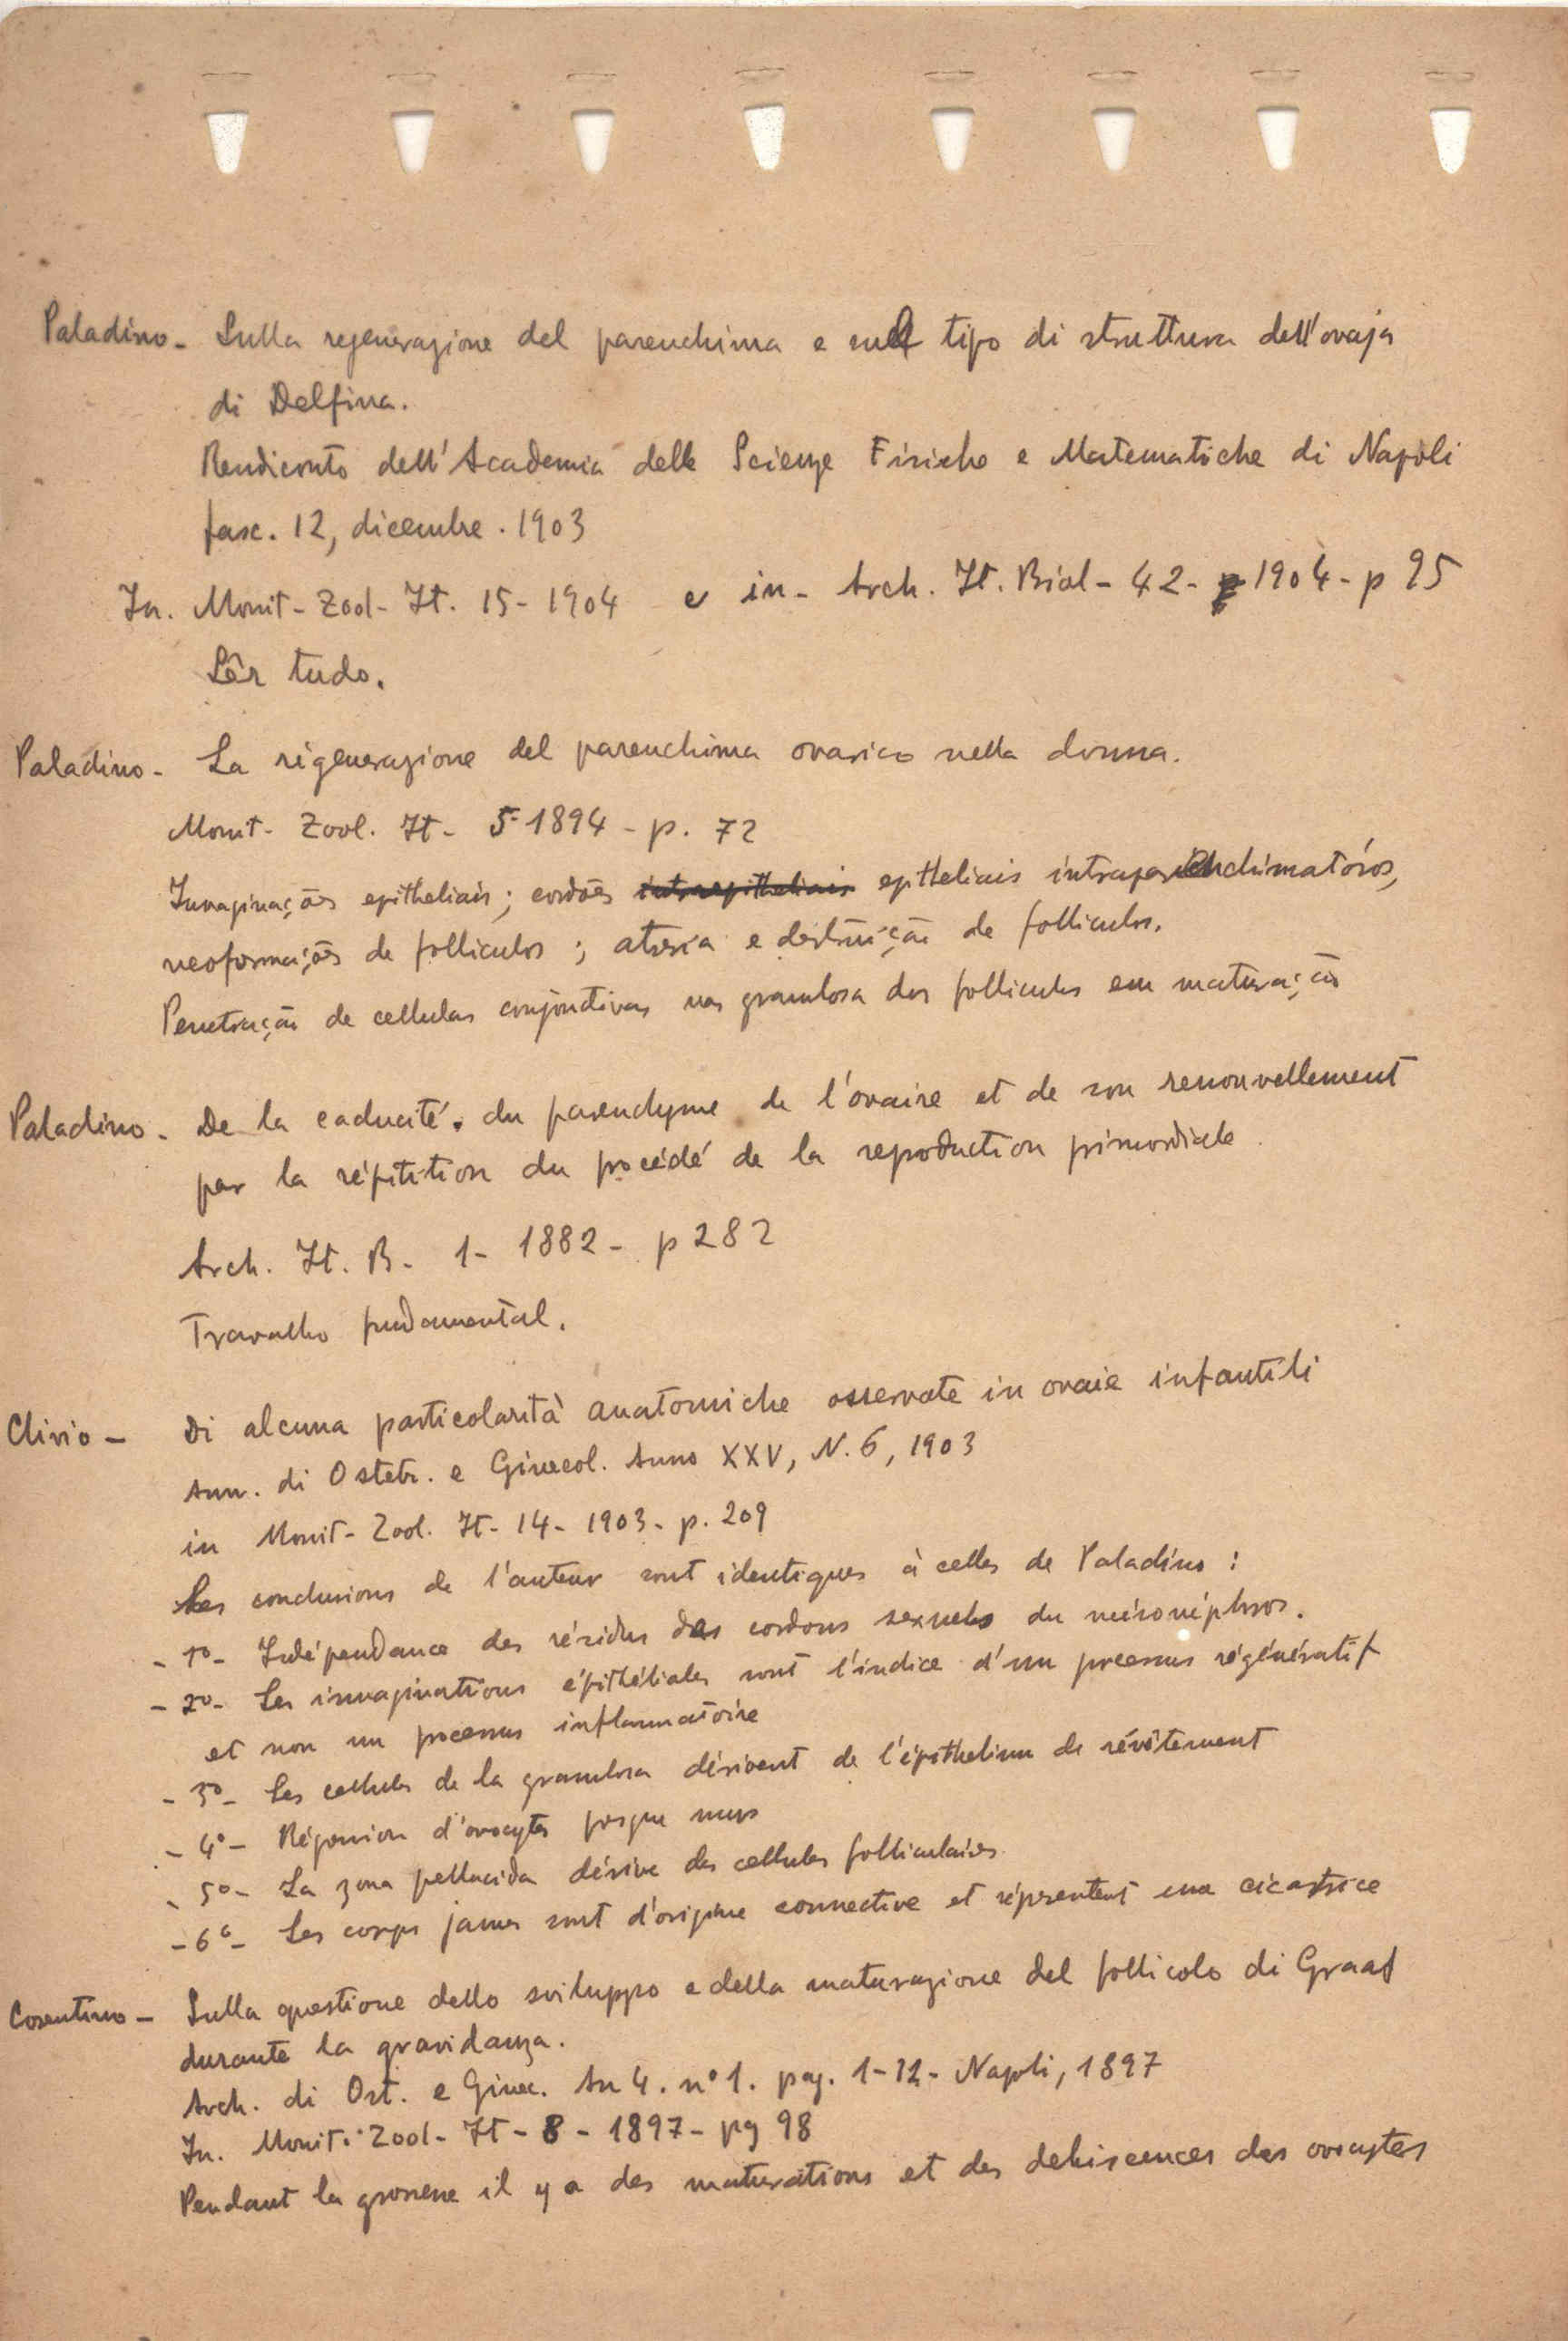 Paladino - Sulla regenerazione del parenchima e sul tipo di struttura dell'ovaja
di Delfina.
Rendiconto dell'Academia delle Scienze Fisiche e Matematiche di Napoli
fasc. 12, dicembre . 1903
In. Monit - Zool - It. 15 - 1904 e in - Arch. It. Biol - 42 - 1904 - p 95
Lêr tudo.
Paladino - La rigenerazione del parenchima ovarico nella donna.
Monit - Zool. It - 5 - 1894 - p. 72
Invaginações epitheliais; cordões intraepitheliais epitheliais intraparenchimatósos,
neoformações de folliculos ; atresia e destruição de folliculos.
Penetração de cellulas conjonctivas nas granulosa dos folliculos em maturação
Paladino - De la caducité du parenchyme de l'ovaire et de son renouvellement
par la répétition du procédé de la reproduction primordiale
Arch. It. B. 1 - 1882 - p 282
Travalho fundamental.
Clivio - Di alcuna particolarità anatomiche osservate in ovaie infantili
Ann. di Ostetr. e Ginecol. Anno XXV, N. 6, 1903
in Monit - Zool. It - 14 - 1903 - p. 209
Les conclusions de l'auteur sont identiques à celles de Paladino :
- 1º - Indépendance des résidus des cordons sexuels du mésonéphros.
- 2º - Les invaginations épithéliales sont l'indice d'un processus régénératif
et non un processus inflammatoire
- 3º - Les cellules de la granulosa dérivent de l'épithelium de révêtement
- 4º - Régression d'ovocytes presque murs
- 5º - La zona pellucida dérive des cellules folliculaires
- 6º - Les corps jaunes sont d'origine connective et répresentent una cicatrice
Cosentino - Sulla questione dello sviluppo e della maturazione del follicolo di Graaf
durante la gravidanza.
Arch. di Ost. e Ginec. An 4. nº 1. pag. 1-12 - Napoli, 1897
In. Monit. Zool - It - 8 - 1897 - pg 98
Pendant la grossesse il y a des maturations et des dehiscences des ovocytes